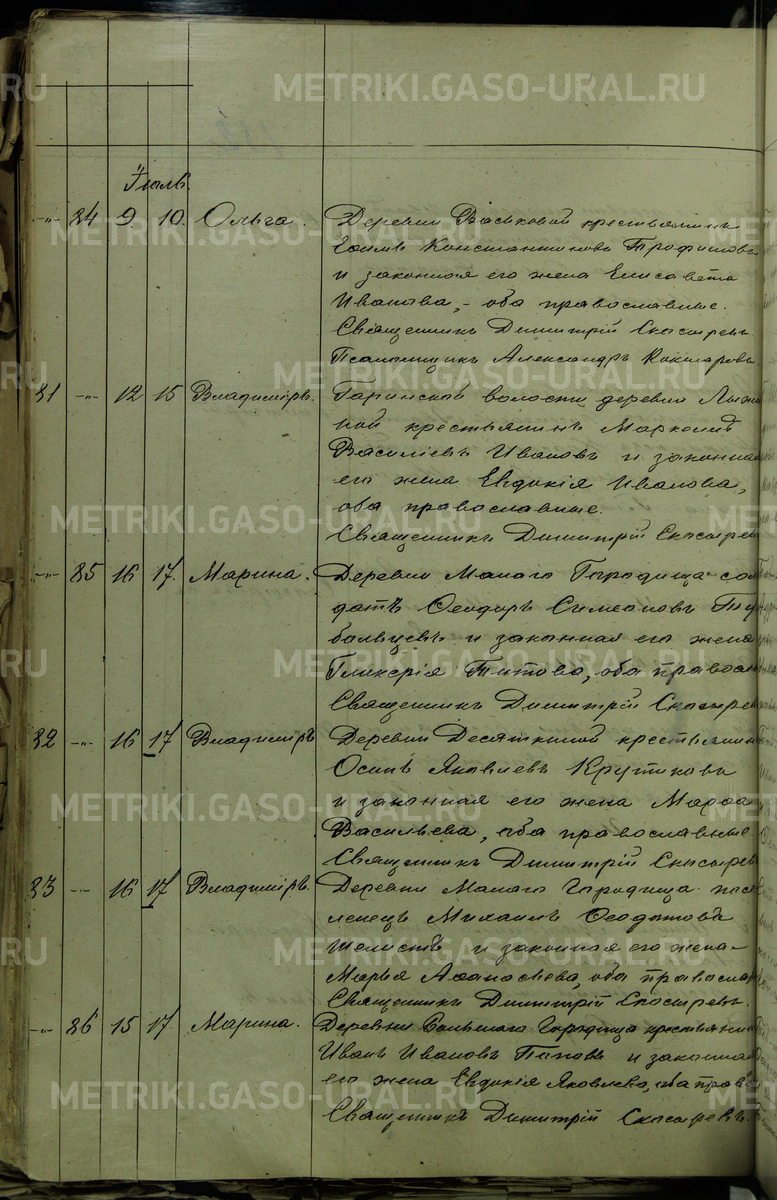 Іюль.
-"- 84 9. 10. Ольга. Деревни Васьковой крестьянинъ
Константиновъ Трофимовъ
и законная его жена Елисавета
Иванова, - оба православные.
Священникъ Димитрій Скосыревъ
Псаломщикъ Александръ Кокшаровъ
81 -"- 12 15 Владиміръ. Гаринской волости деревни
крестьянинъ
Василіевъ Ивановъ и законная
его жена Евдокія Иванова,
оба православные.
Священникъ Димитрій Скосырев
-"- 85 16 17. Марина. Деревни Малаго Городища сол
датъ Ѳеодоръ Симеоновъ
и законная его жена
Гликерія Титова, оба правосл
Священникъ Димитрій Скосырев
82 -"- 16 17 Владиміръ Деревни крестьянин
Осипъ Яковлевъ Крутиковъ
и законная его жена Марѳа
Васильева, оба православные
Священникъ Димитрій Скосырев
83 -"- 16 17 Владиміръ. Деревни Малаго Городища посе
ленецъ Михаилъ Ѳеодотовъ
и законная его жена
Марья Аѳанасьева, оба правосла
Священникъ Димитрій Скосыревъ.
-"- 86 15 17. Марина. Деревни Большого Городища крестьянин
Иванъ Ивановъ Поповъ и законная
его жена Евдокія Яковлева, оба прав
Священникъ Димитрій Скосыревъ.
METRIKI.GASO-URAL.RU